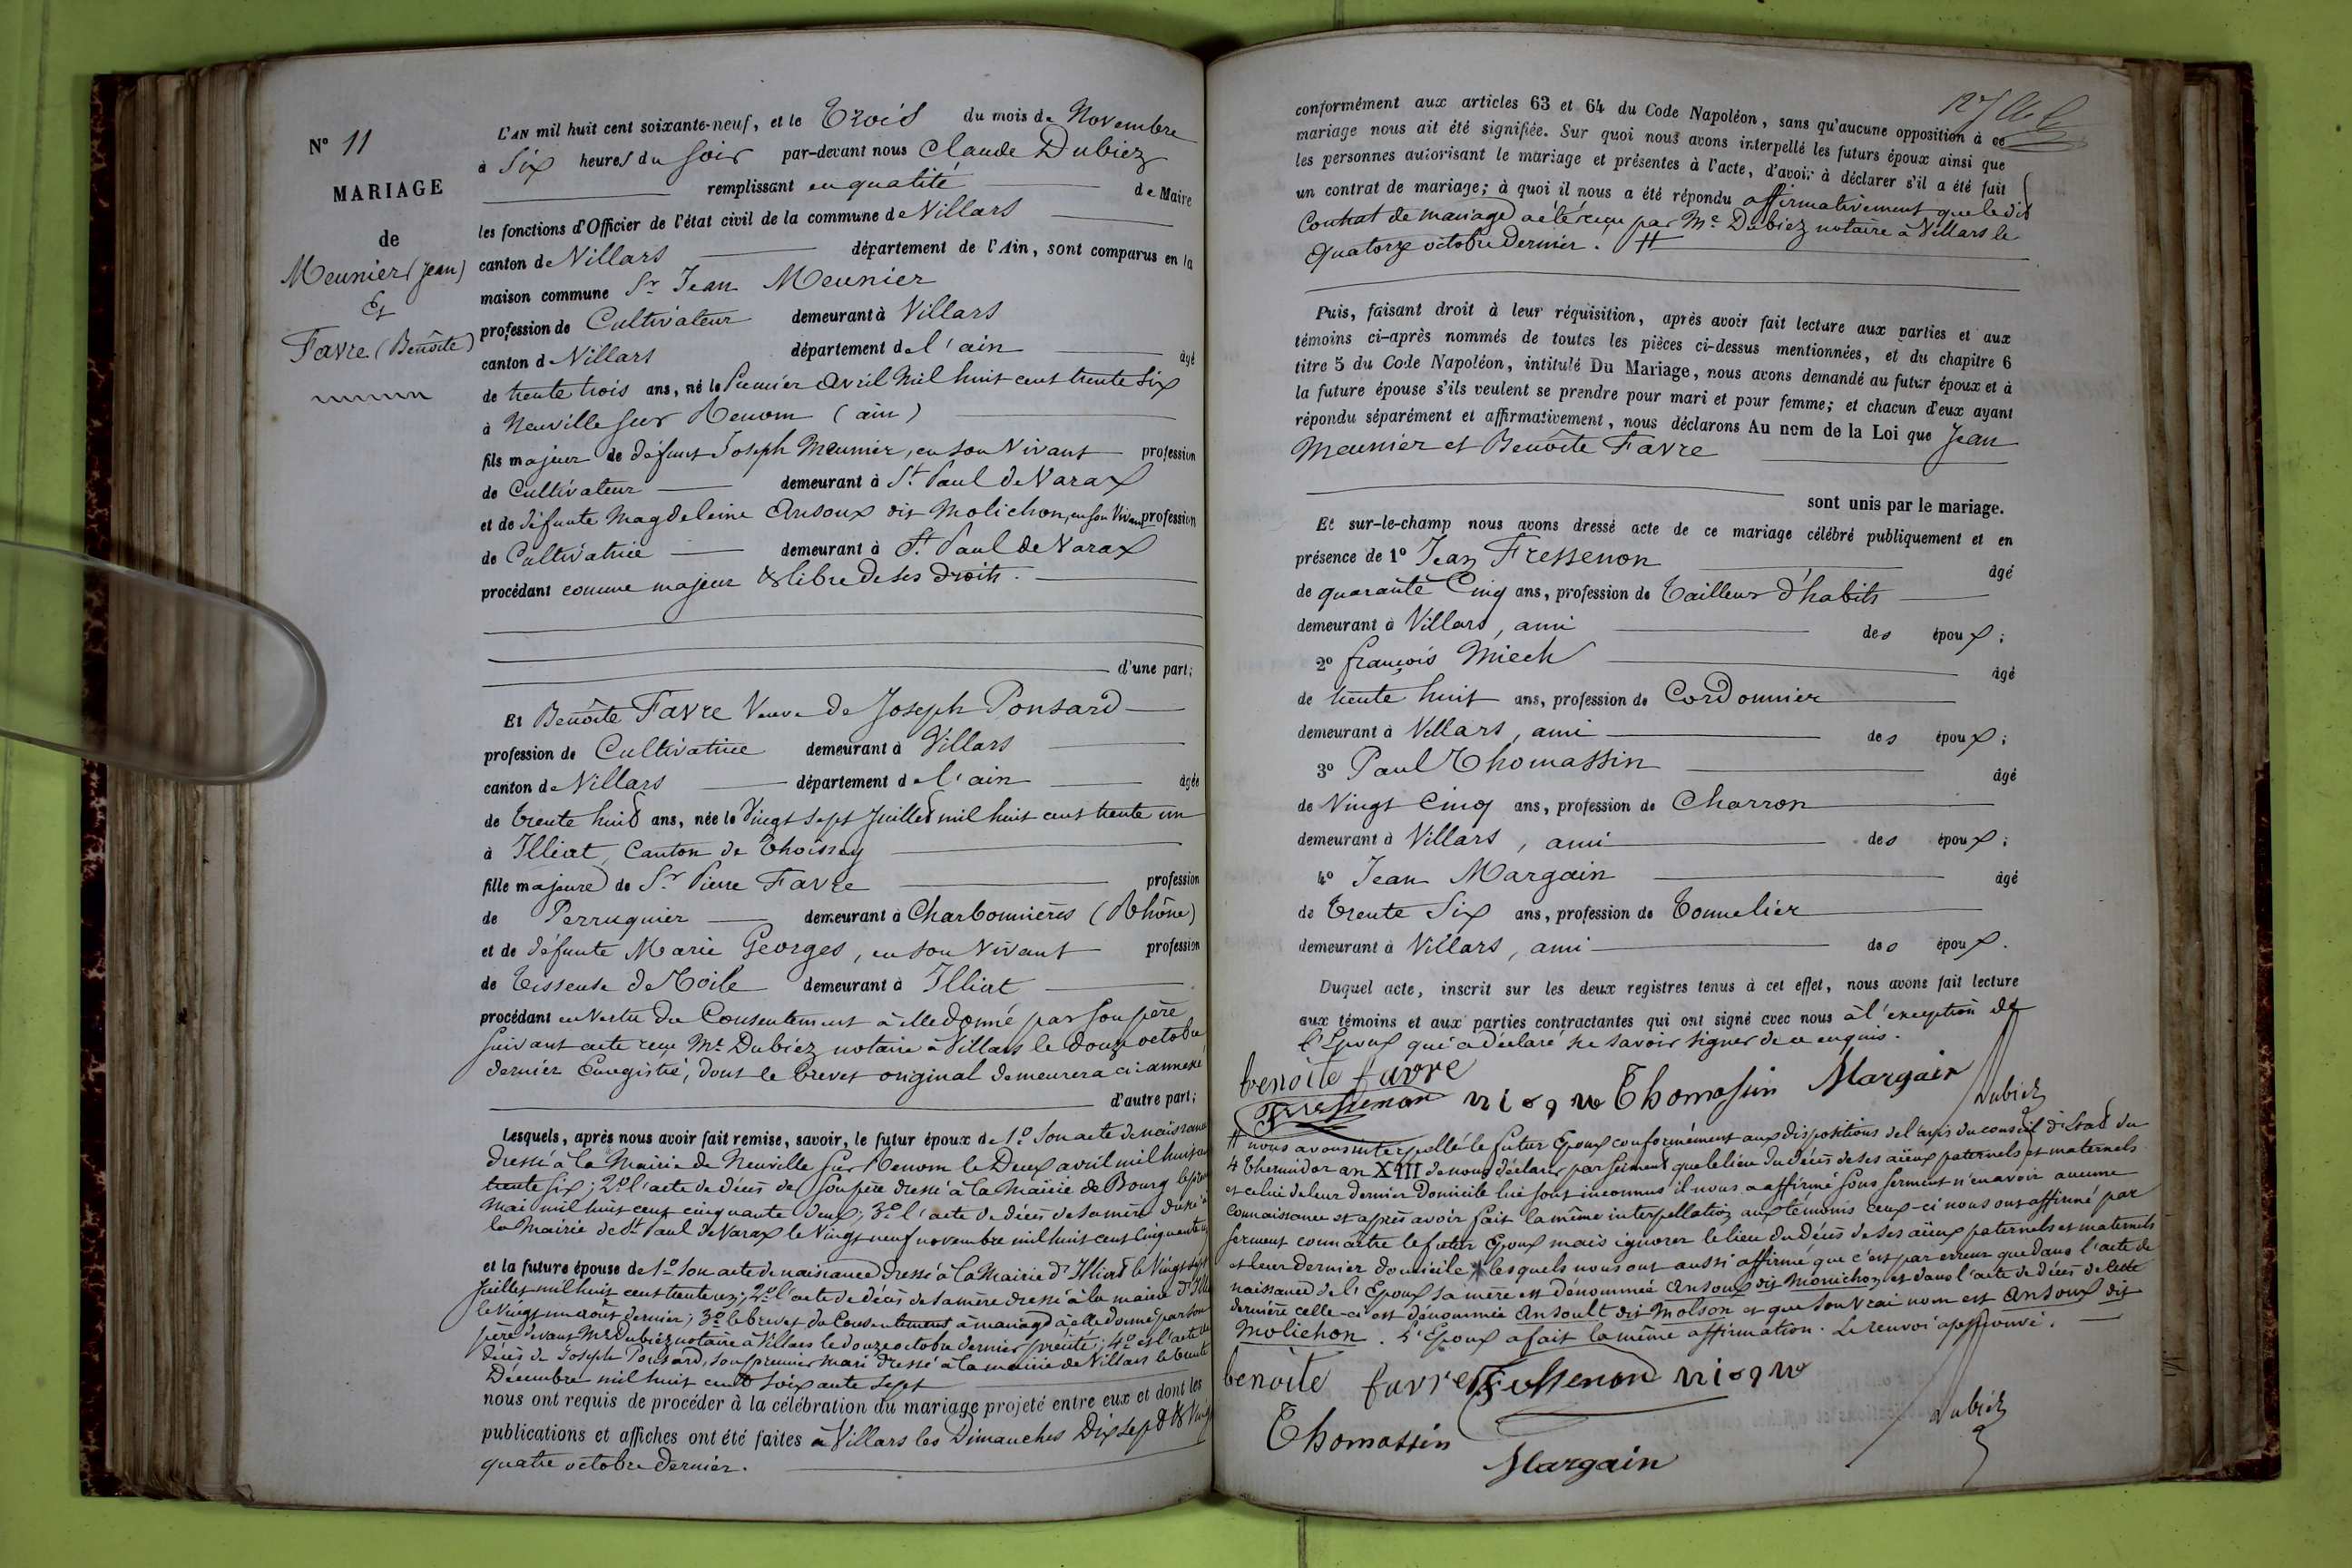 N° 11
MARIAGE
de
Meunier (Jean)
Et
Favre (Benoîte)
L'AN mil huit cent soixante-neuf, et le Trois du mois de Novembre
à Six heures du Soir par-devant nous Claude Dubiez
remplissant en qualité de Maire
les fonctions d'Officier de l'état civil de la commune de Villars
canton de Villars département de l'Ain, sont comparus en la
maison commune Sr Jean Meunier
profession de Cultivateur demeurant à Villars
canton d Villars département de l'ain âgé
de trente trois ans, né le Premier Avril Mil huit cent trente Six
à Neuville sur Renom (ain)
fils majeur de défunt Joseph Meunier, en son Vivant profession
de Cultivateur demeurant à St Paul de Varax
et de défunte Magdeleine Ansoux dit Molichon, en son Vivant profession
de Cultivatrice demeurant à St Paul de Varax
procédant comme majeur & libre de ses droits.
d'une part;
Et Benoîte Favre Veuve de Joseph Ponsard
profession de Cultivatrice demeurant à Villars
canton de Villars département de l'ain âgée
de trente huit ans, née le Vingt Sept Juillet mil huit cent trente un
à Illiat, Canton de Thoissey
fille majeure de Sr Pierre Favre profession
de Perruquier demeurant à Charbonnières (Rhône)
et de défunte Marie Georges, en son Vivant profession
de Tisseuse de Toile demeurant à Illiat
procédant en Vertu du Consentement à elle donné par son père
suivant acte reçu Me Dubiez notaire à Villars le douze octobre
dernier Enregistré, dont le brevet original demeurera ci-annexé
d'autre part;
Lesquels, après nous avoir fait remise, savoir, le futur époux de 1° Son acte de naissance
dressé à la Mairie de Neuville sur Renom le Deux avril mil huit cent
trente six; 2° l'acte de décès de son père dressé à la Mairie de Bourg le
Mai mil huit cent cinquante deux; 3° l'acte de décès de sa mère dressé à
la Mairie de St Paul de Varax le Vingt neuf novembre mil huit cent cinquante
et la future épouse de 1° Son acte de naissance dressé à la Mairie d'Illiat le Vingt sept
Juillet mil huit cent trente un; 2° l'acte de décès de sa mère dressé à la mairie d'
le Vingt un août dernier; 3° le brevet du Consentement à mariage à elle donné par son
père devant Me Dubiez notaire à Villars le douze octobre dernier précité; 4° et l'acte de
décès de Joseph Ponsard, son premier mari dressé à la mairie de Villars le trente
Décembre mil huit cent soixante sept
nous ont requis de procéder à la célébration du mariage projeté entre eux et dont les
publications et affiches ont été faites à Villars les Dimanches Dix sept & Vingt
quatre octobre dernier.
conformément aux articles 63 et 64 du Code Napoléon, sans qu'aucune opposition à ce
mariage nous ait été signifiée. Sur quoi nous avons interpellé les futurs époux ainsi que
les personnes autorisant le mariage et présentes à l'acte, d'avoir à déclarer s'il a été fait
un contrat de mariage; à quoi il nous a été répondu affirmativement que le dit
Contrat de mariage a été reçu par Me Dubiez notaire à Villars le
Quatorze octobre dernier. #
Puis, faisant droit à leur réquisition, après avoir fait lecture aux parties et aux
témoins ci-après nommés de toutes les pièces ci-dessus mentionnées, et du chapitre 6
titre 5 du Code Napoléon, intitulé Du Mariage, nous avons demandé au futur époux et à
la future épouse s'ils veulent se prendre pour mari et pour femme; et chacun d'eux ayant
répondu séparément et affirmativement, nous déclarons Au nom de la Loi que Jean
Meunier et Benoîte Favre
sont unis par le mariage.
Et sur-le-champ nous avons dressé acte de ce mariage célébré publiquement et en
présence de 1° Jean Fressenon âgé
de quarante Cinq ans, profession de Tailleur d'habits
demeurant à Villars, ami des époux;
2° françois Miech âgé
de trente huit ans, profession de Cordonnier
demeurant à Villars, ami des époux;
3° Paul Thomassin âgé
de Vingt Cinq ans, profession de Charron
demeurant à Villars, ami des époux;
4° Jean Margain âgé
de Trente Six ans, profession de Tonnelier
demeurant à Villars, ami des époux.
Duquel acte, inscrit sur les deux registres tenus à cet effet, nous avons fait lecture
aux témoins et aux parties contractantes qui ont signé avec nous à l'exception de
l'Epoux qui a déclaré ne savoir signer de ce enquis.
benoîte favre
Fressenon Thomassin Margain Dubiez
# nous avons interpellé le futur Epoux conformément aux dispositions de l'avis du conseil d'Etat du
4 thermidor an XIII de nous déclarer par serment que le lieu du décès de ses aïeux paternels et maternels
et celui de leur dernier Domicile lui sont inconnus il nous a affirmé sous serment n'en avoir aucune
Connaissance et après avoir fait la même interpellation aux témoins ceux-ci nous ont affirmé par
serment connaître le futur Epoux mais ignorer le lieu du décès de ses aïeux paternels et maternels
et leur dernier domicile, lesquels nous ont aussi affirmé que c'est par erreur que dans l'acte de
naissance de l'Epoux sa mère est dénommée Ansoux dit Monichon et dans l'acte de décès de cette
dernière celle-ci est dénommée Ansoult dit Molson et que son Vrai nom est Ansoux dit
Molichon. L'Epoux a fait la même affirmation. Le renvoi approuvé.
benoîte favre Fressenon
Thomassin Dubiez
Margain